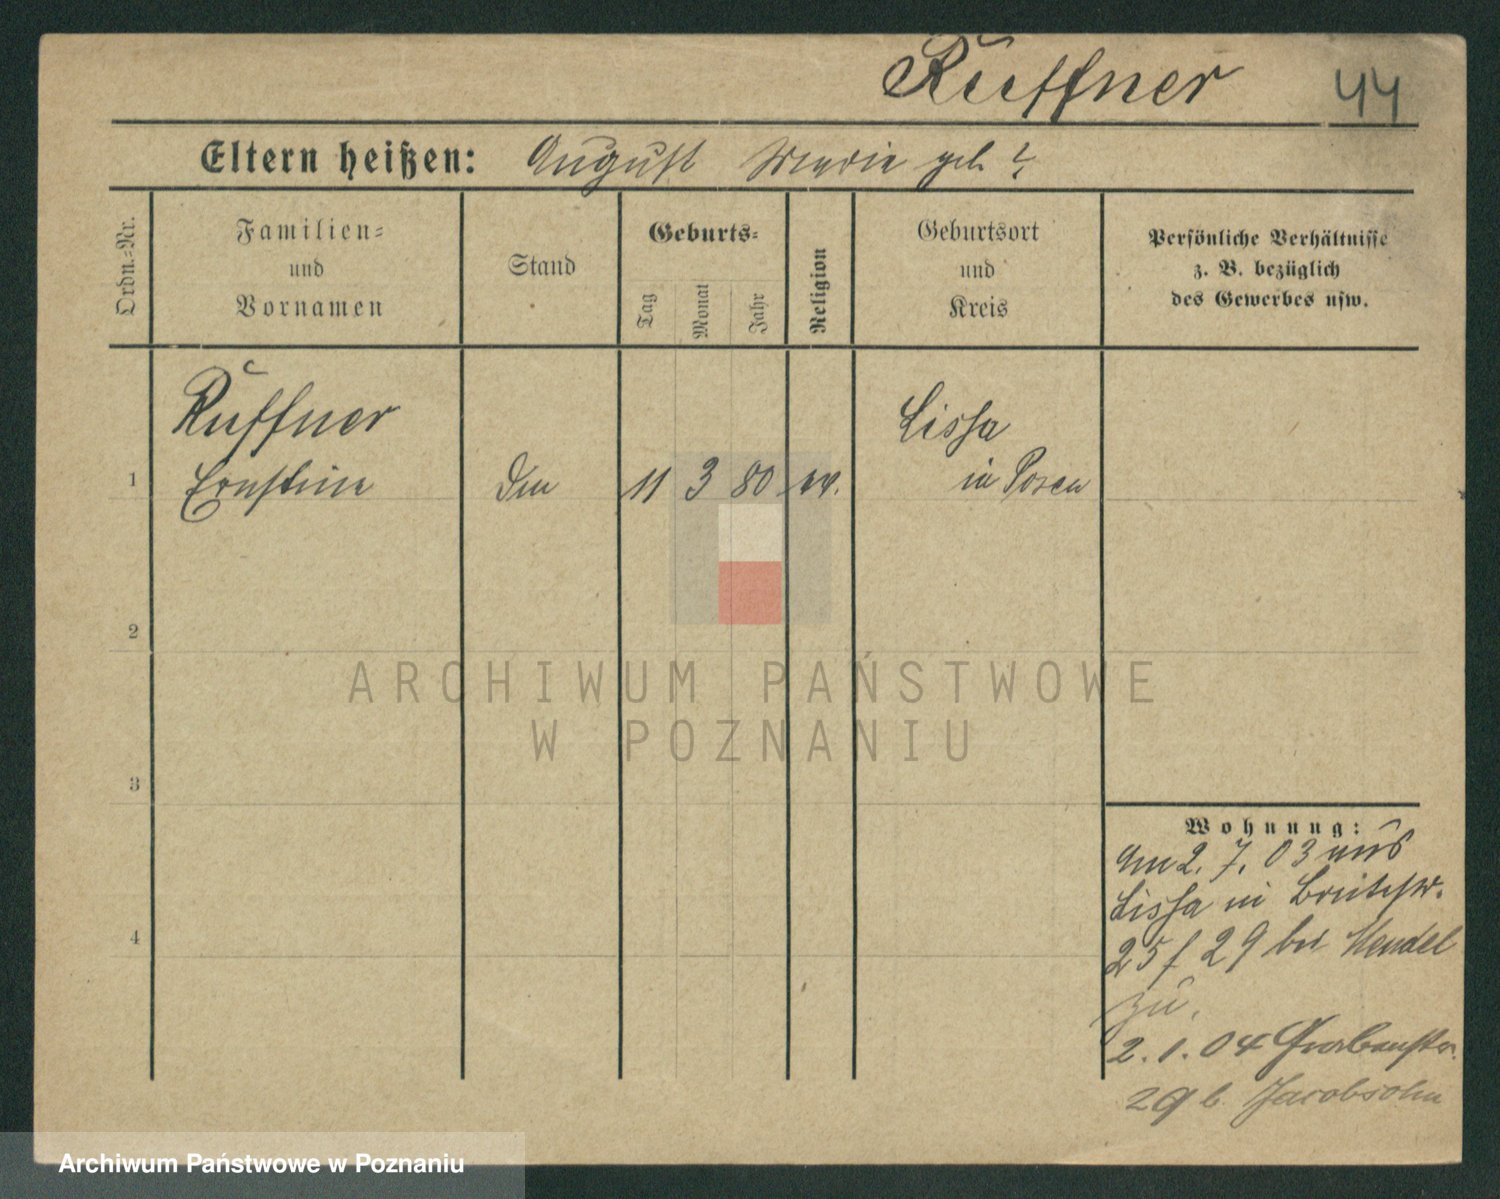 Ruffner 44
Eltern heißen: August Marie geb ?
Ordn.-Nr.
Familien-
und
Vornamen
Stand
Geburts-
Tag
Monat
Jahr
Religion
Geburtsort
und
Kreis
Persönliche Verhältnisse
z. B. bezüglich
des Gewerbes usw.
Ruffner
Lissa
1 Ernstine 11 3 80 ev. in Posen
2
ARCHIWUM PAŃSTWOWE
W POZNANIU
3
Wohnung:
am 2. 7. 03 aus
Lissa in Breitestr.
4
25 / 29 bei Mendel
zu.
2. 1. 04 Grabenstr.
29 b. Jacobsohn
Archiwum Państwowe w Poznaniu